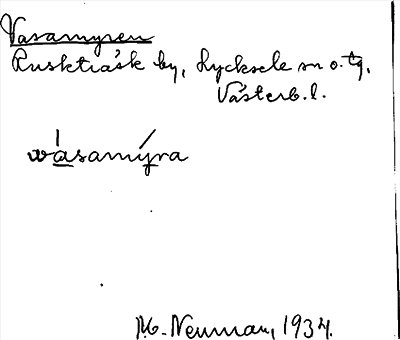 Vasamyren
Rusktråsk by, Lycksele sn o. tg.
Västerb. l.
wasamýra
M. Neuman, 1934.